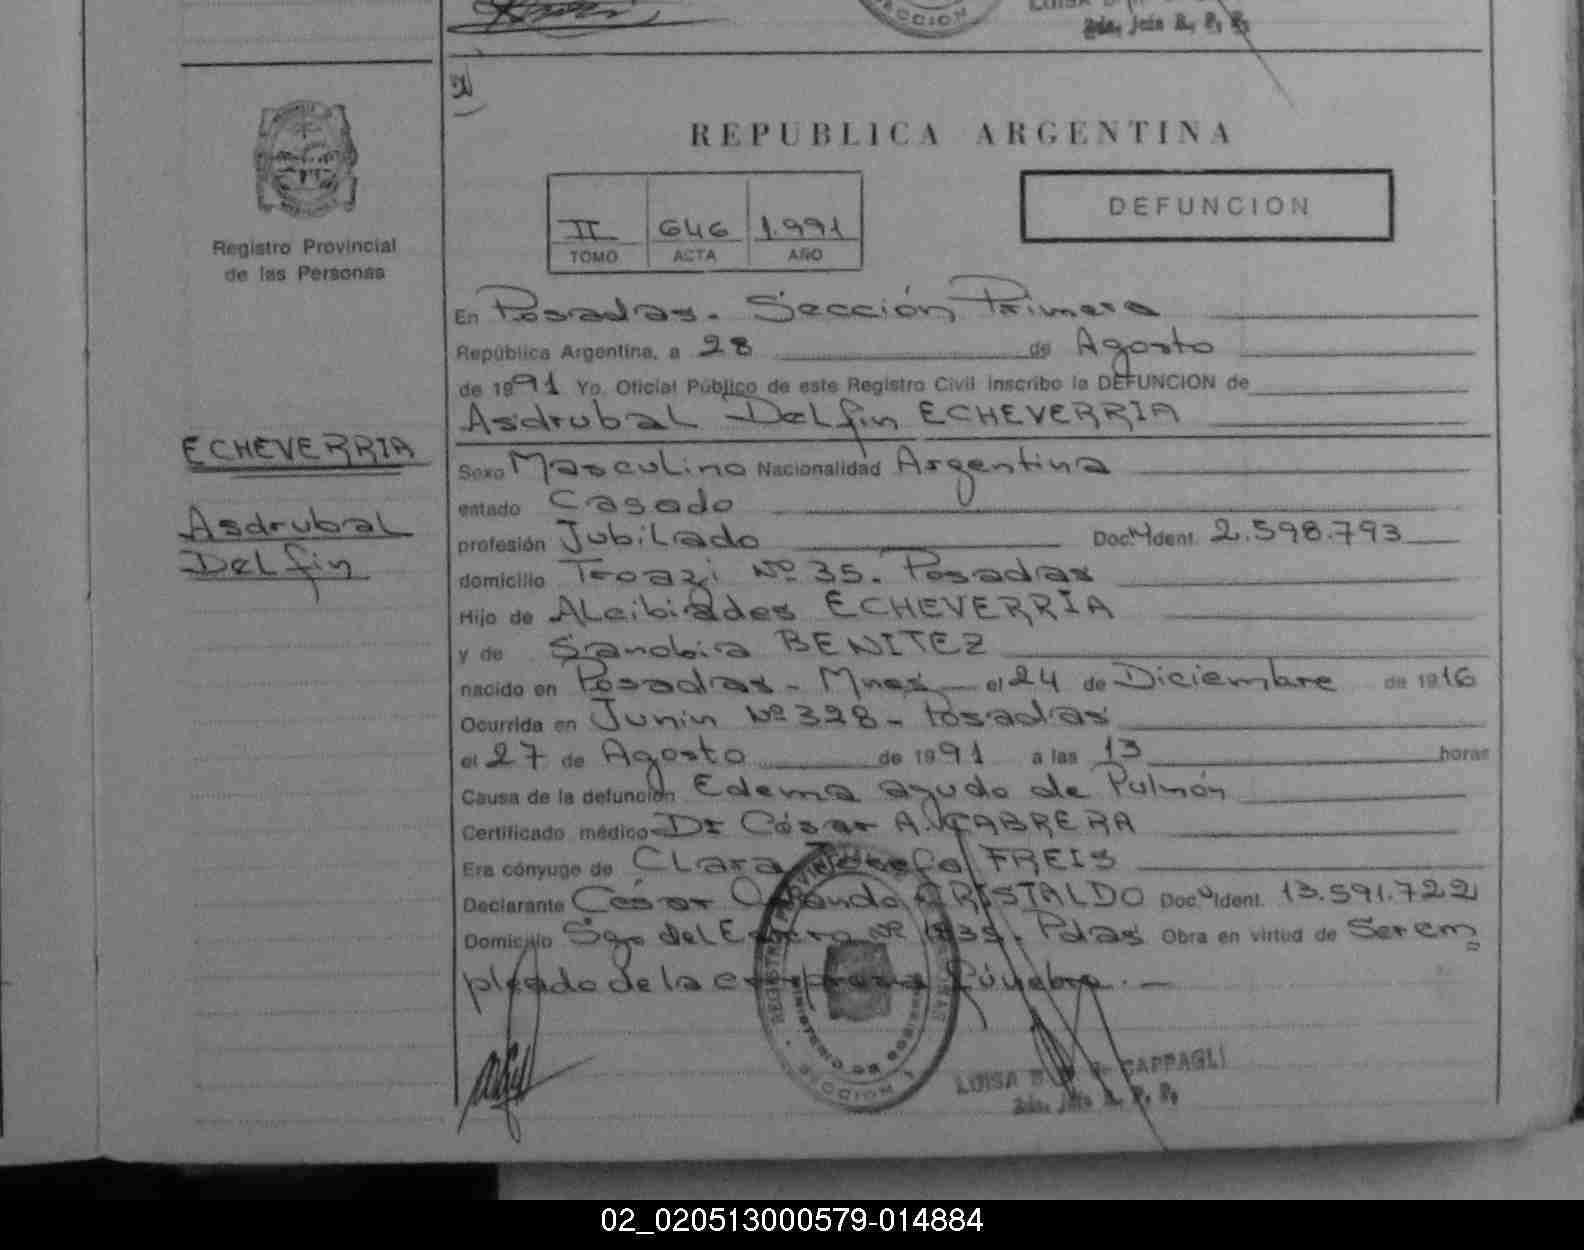 SECCION
2da. Jefa R. P. P.
REPUBLICA ARGENTINA
DEFUNCION
II 646 1.991
TOMO ACTA AÑO
Registro Provincial
de las Personas
ECHEVERRIA
Asdrubal
Delfin
En Posadas. Sección Primera
República Argentina, a 28 de Agosto
de 1991 Yo, Oficial Público de este Registro Civil inscribo la DEFUNCION de
Asdrubal Delfin ECHEVERRIA
Sexo Masculino Nacionalidad Argentina
estado Casado
profesión Jubilado Doc. Ident. 2.598.793
domicilio Nº 35. Posadas
Hijo de Alcibiades ECHEVERRIA
y de Sanobia BENITEZ
nacido en Posadas - Mnes el 24 de Diciembre de 1916
Ocurrida en Junin Nº 328 - Posadas
el 27 de Agosto de 1991 a las 13 horas
Causa de la defunción Edema agudo de Pulmón
Certificado médico Dr César A. CABRERA
Era cónyuge de Clara Josefa FREIS
Declarante César ARISTALDO Doc. Ident. 13.591.722
Domicilio Sgo del Estero Nº 1835. Pdas Obra en virtud de Ser em
pleado de la empresa fúnebre. —
REGISTRO PROVINCIAL
MINISTERIO DE GOBIERNO
SECCION 1
LUISA B. CAPPAGLI
2da. Jefa R. P. P.
02_020513000579-014884